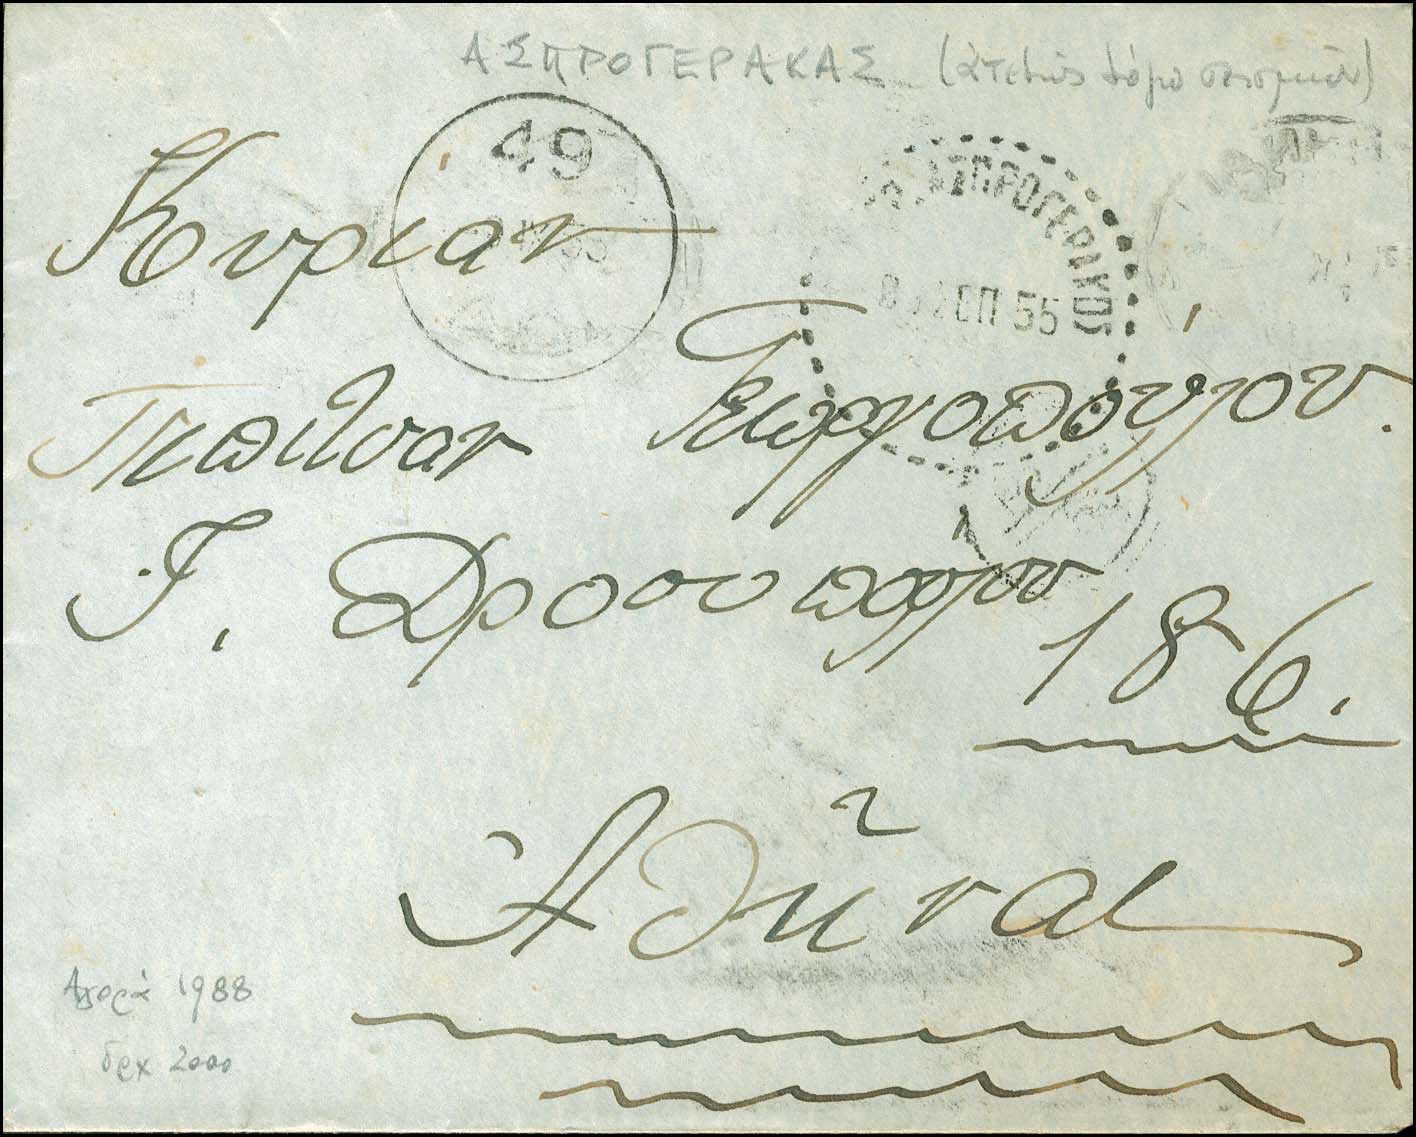 ΑΣΠΡΟΓΕΡΑΚΑΣ (ἀτελῶς λόγω σεισμῶν)
49
ΑΣΠΡΟΓΕΡΑΚΟΣ
ΣΕΠ 55
Κυρίαν
Πιπίλσαν Γεωργοπούλου.
Γ. Δροσοπούλου
186.
Ἀθῆνας
Αγορά 1988
δρχ 2000